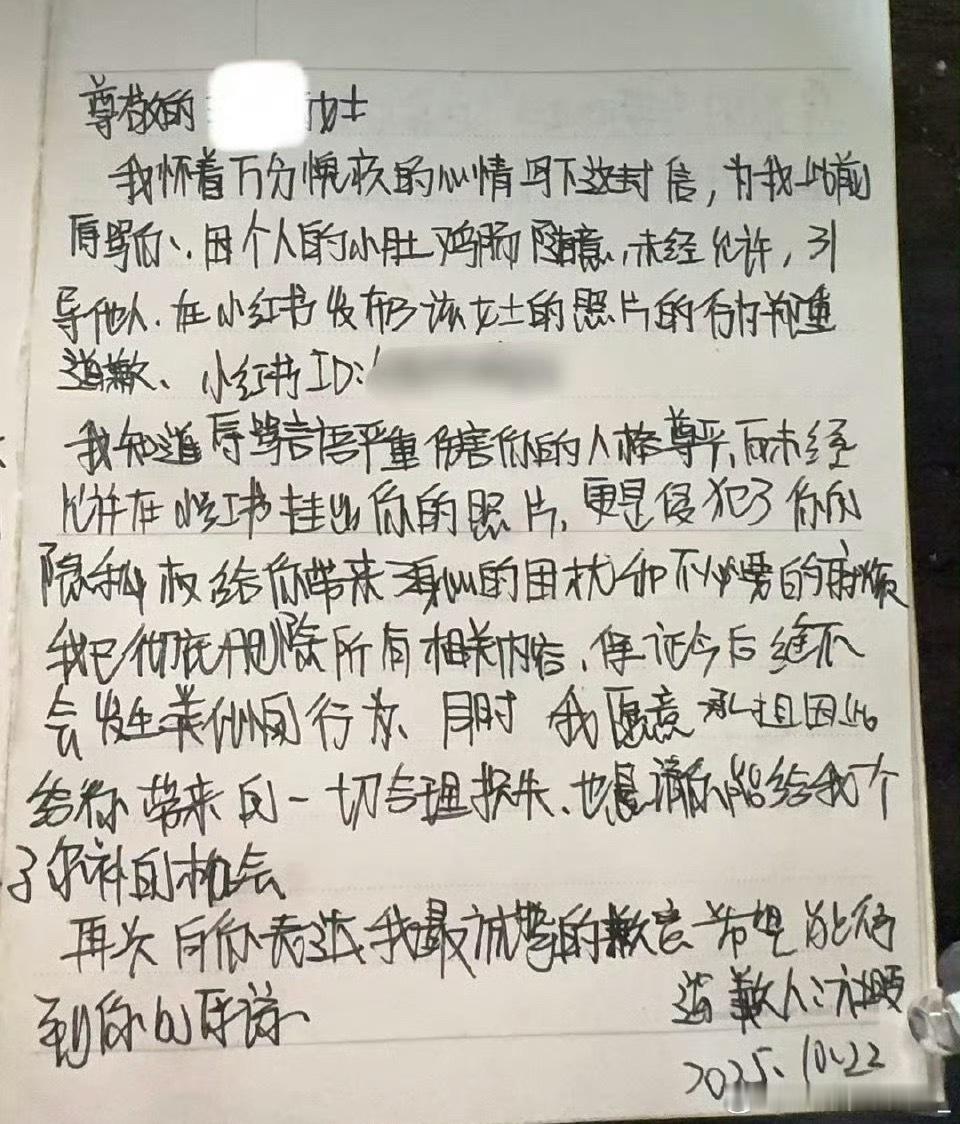 尊敬的 女士
我怀着万分愧疚的心情写下这封信，为我此前
辱骂你、因个人的小肚鸡肠 随意，未经允许，引
导他人、在小红书发布了该女士的照片的行为郑重
道歉、小红书ID：
我知道辱骂言语严重伤害你的人格尊严，而未经
允许在小红书挂出你的照片，更是侵犯了你的
隐私权给你带来 身心的困扰和不必要的麻烦
我已彻底删除所有相关内容，保证今后绝不
会发生类似的行为、同时 我愿意承担因此
给你带来的一切合理损失、也恳请你能给我一个
弥补的机会
再次向你表达我最诚挚的歉意 希望能得
到你的原谅、
道歉人：
2025.10.22